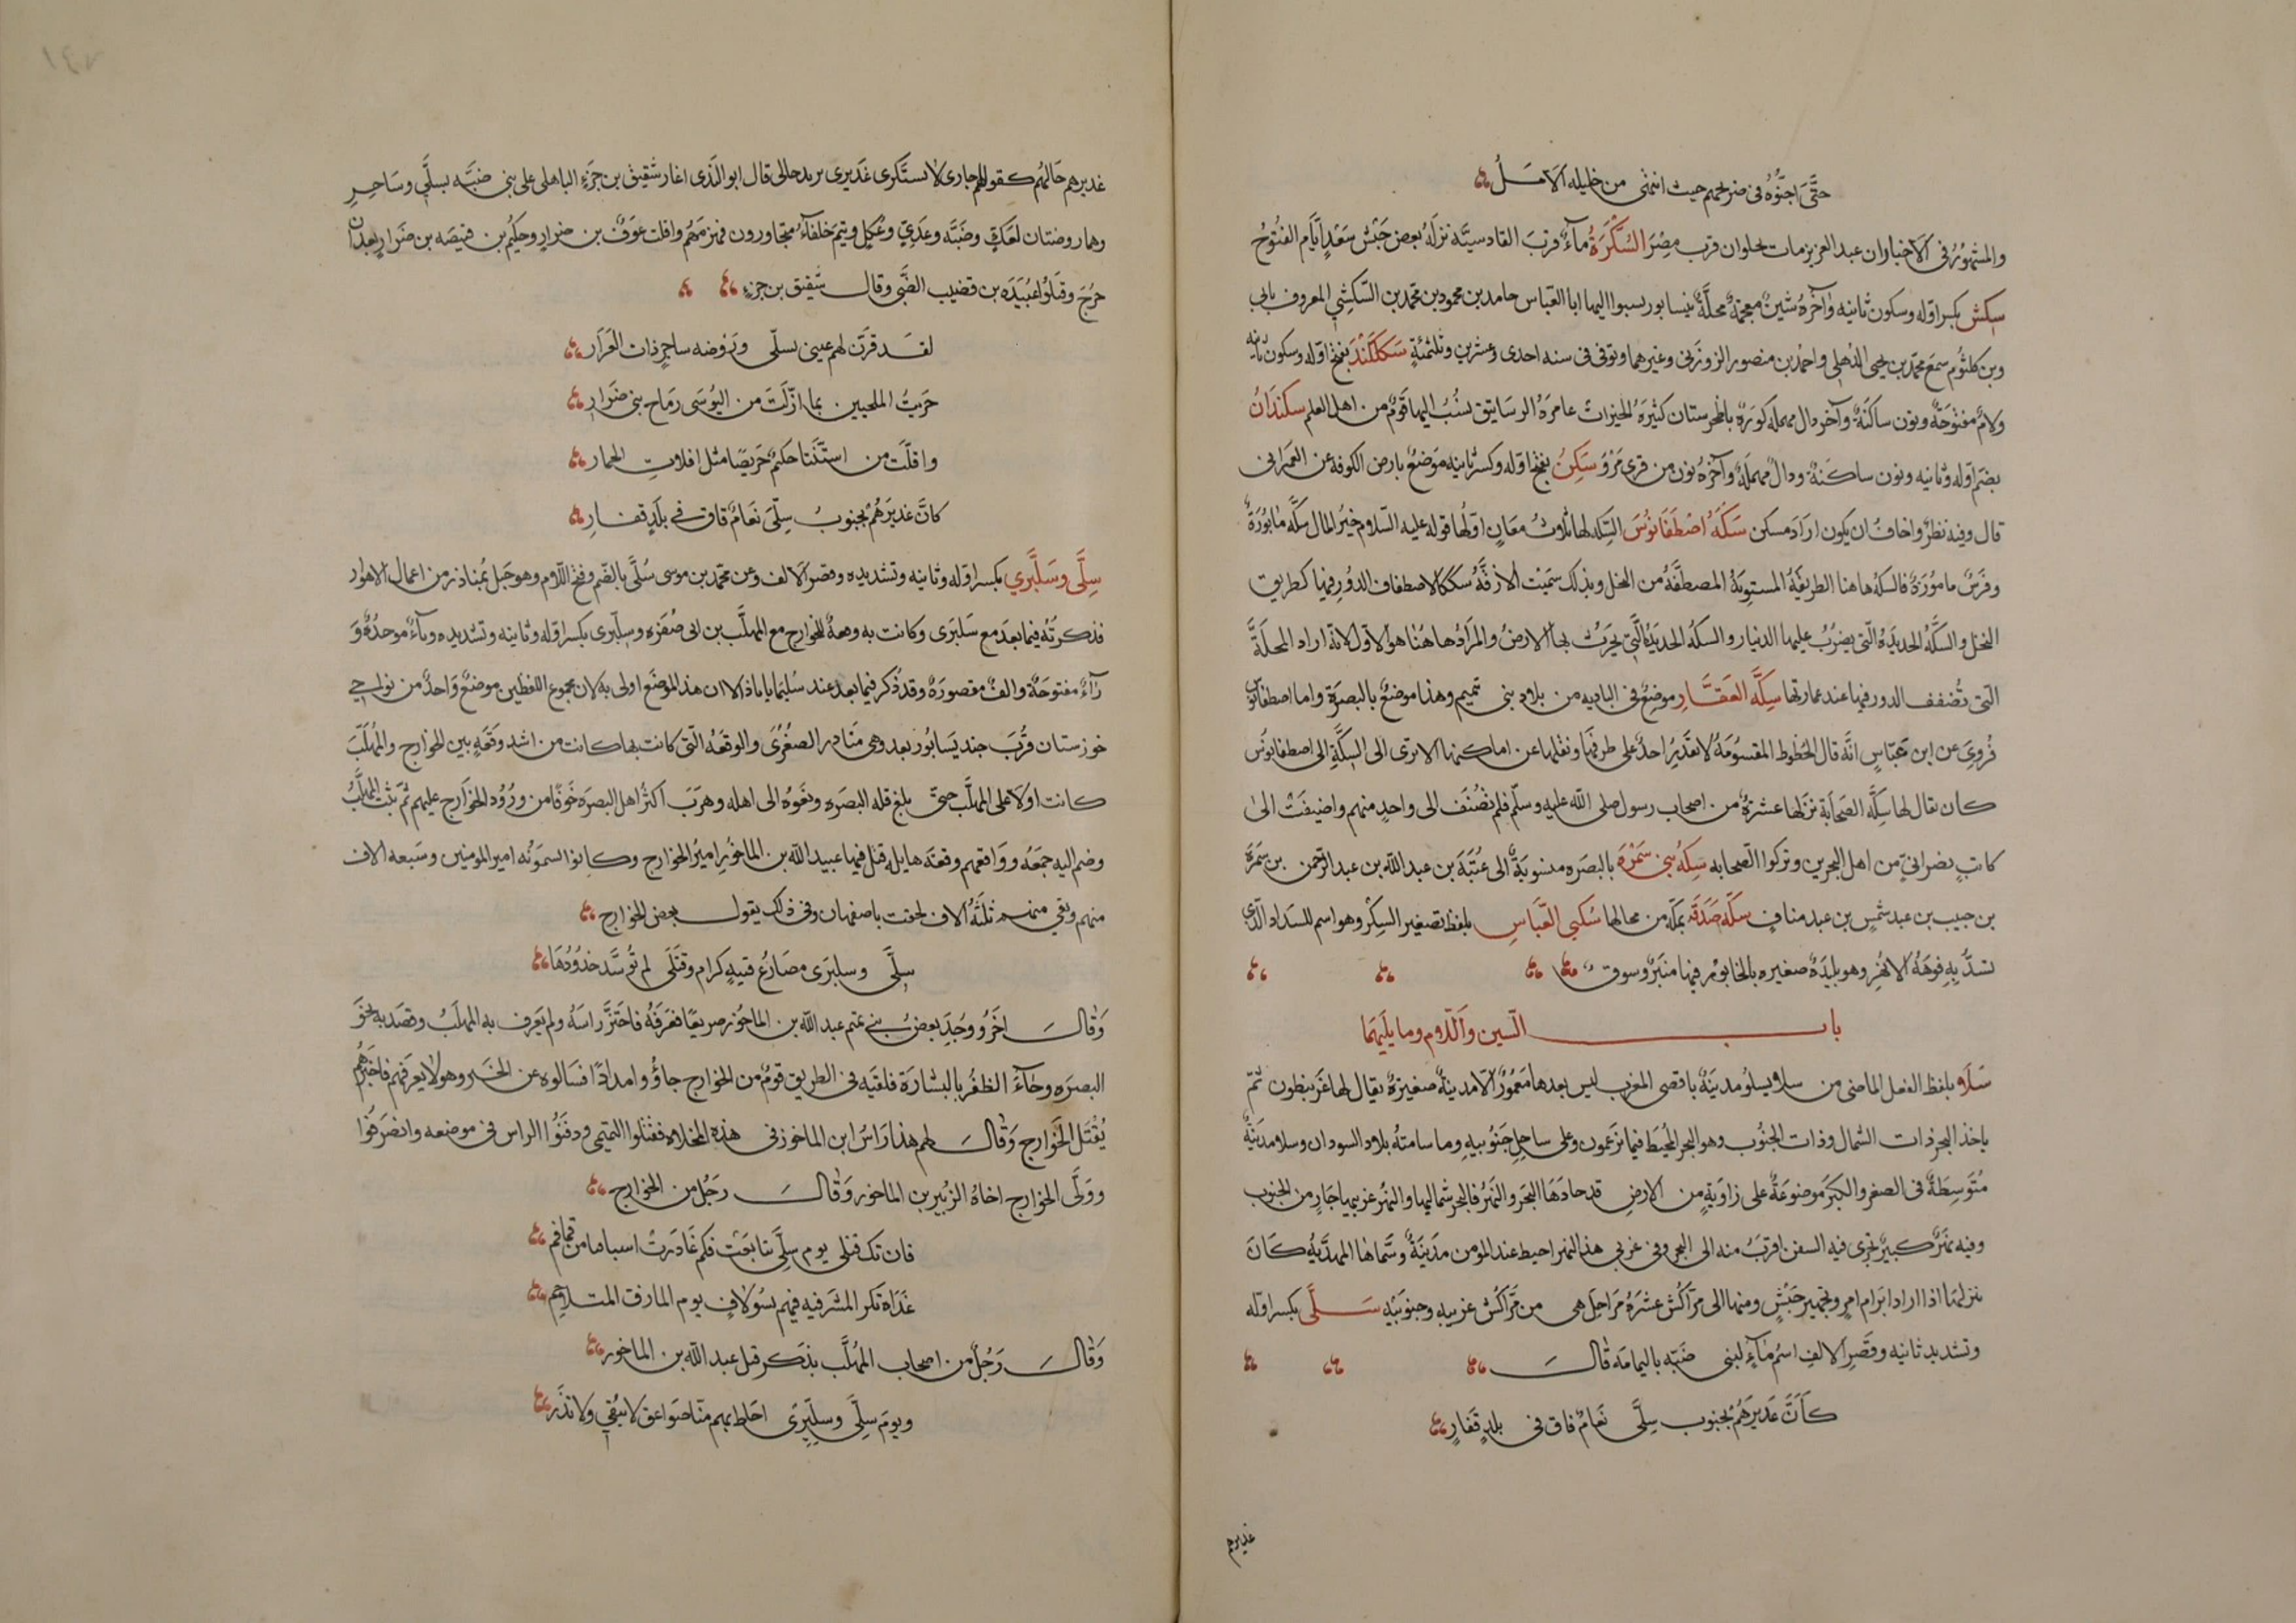 حتَّى اجنُّوُه في ضريحهم حيث انتهى من خليله الأمَلُ
والمشهُورُ في الأخبار ان عبد العزيز مات بحلوان قرب مصْرَ السُّكَّرَةُ مآءٌ قربَ القادسيَّه نزلَهُ بعض جَيْش سَعْدٍ ايَّام الفتُوحُ
سِكِش بكسر اوّله وسكون ثانيه وآخرُه شينٌ معجمةٌ محلَّةٌ بنيسابور نسبوا اليها ابا العَبّاس حامد بن محمود بن محمّد بن السِّكشِي المعروف بابي
وبن كلثوُم سمعَ محمّد بن يحيى الذُهلي واحمْد بن منصور الزوزَني وغيرهما وتوفي في سنه احدى وعشرين وثلثمئَةٍ سَكلكَنْد بفتح اوّله وسكون ثانيه
ولامٌ مفتُوحَةٌ ونون ساكنَةٌ وآخره دال مهمله كوُرَةٌ بطخرستان كثيرَهُ الخيراتُ عامرَهُ الرسَاتيق نسُبُ اليها قَومٌ من اهل العلم سكندَانُ
بضم اوّله وثانيه ونون ساكَنةٌ ودالٌ مهملَةٌ وآخرُه نون من قرى مَرْوُ سَكِنُ بفتح اوّله وكسر ثانيه مَوضعٌ بارض الكوفه عن العمرَاني
قال وفيه نظرٌ واخافُ ان يكون ارَادَ مسكن سَكَّهُ اصْطَفَانوُسَ السّكه لها ثلاثُ معَانٍ اوّلُها قوله عليه السّلام خيَرُ المال سكَّه مَابورَةٌ
وفَرسٌ مامُورَةٌ فالسكةُ هاهنا الطريقَةُ المستويَةُ المصطفَّهُ من النخل وبذلك سمّيت الازقَّةُ سككا لاصطفاف الدوُر فيها كطريق
النخل والسكَّةُ الحديدَهُ الّتي يضرُبُ عليها الدنيار والسكه الحديَدهُ الّتي يحَرثُ بها الارضُ والمرَادُ هاهُنا هو الأوّل لانّه اراد المحلَّةَ
الّتي تُضفف الدور فيها عند عمارتها سِكَّه العَقَّارِ موضعٌ في الباديه من بلاد بني تميم وهذا موضعٌ بالبصرَةِ واما اصطفانوُس
فرُويَ عن ابن عبّاسٍ انَّه قال الخطوط المقسوُمَةُ لا يقَديرُ احدٌ على طرفيها ونقلها عن اماكنها الا ترى الى السِكَّةِ الى اصطفانوُس
كان يقال لها سِكَّه الصَحابَة نزلها عشرةٌ من اصحاب رسول صلى اللّه عليه وسلّم فلم تُضَف الى واحدٍ منهم واضيفَتْ الى
كاتبٍ نصرانيٍ من اهل البحرين وتركوا الصّحابه سكةُ بني سَمُرْةَ بالبصرَه منسوبَةٌ الى عُتبَةَ بن عبد اللّه بن عبد الرّحمن بن سَمُرَةَ
بن حبيب بن عبد شمسٍ بن عبد منافٍ سكّه صَدَقَه بمكّه من محالها سُكير العَبّاسِ بلفظ تصغير السِكْر وهو اسم للسّداد الّذي
تسدُّ بِهِ فوهَةُ الانهُر وهو بليدَةٌ صغيره بالخابُور فيها منبَرٌ وسوق
بابُ السّين واللّام وما يليهِمَا
سَلَا بلفظ الفعل الماضي من سلا يسلُو مدينَةٌ باقصى المغرب ليس بعدها معَمُورٌ الاّ مدينةٌ صغيرةٌ يقال لها غَرنيطون ثمّ
ياخذ البحر ذات الشّمال وذات الجنُوب وهو البحر المحُيطَ فيما يَزعَمون وعلى ساحل جَنُوبيه وما سامتهُ بلاد السودان وسلا مدينَةٌ
مُتَوسِطَةٌ في الصغر والكبرَ مَوضوعَةٌ على زاويَةٍ من الارضِ قد حادَها البحَر والنَهرُ فالبحر شماليها والنهرُ غربيها جَارٍ من الجنوب
وفيه نهرٌ كبيرٌ يَجري فيه السفن اقربَ منه الى البحر وفي غربي هذا النهر احيط عند المؤمن مَدينَةً وسَّماها المهدَّيةُ كَانَ
ينزلهَا اذا اراد ابَرام امرٍ وتجهيز جَيْشٍ ومنها الى مرّاكُش عشرَهُ مَرَاحِلَ هي من مَرّاكُش غربيه وجنوبَيه سَلَّى بكسر اوّله
وتشديد ثانيه وقَصِر الألفِ اسمُ مآءٍ لبني ضبّه باليمامَه قالَ
كاَنَّ غَديرَهُم بجنوب سِلَّى نَعامٌ قاق في بلدٍ قَفارِ
غديرهم
غديرهم حَالهُم كقولهم جارى لا تستَنكرى غَديرى يريد حالى قال ابو النَدى اغار شَقيق بن جَزءٍ الباهلى على بني ضبّه بسلَّى وسَاجرٍ
وهما روضتان لعَكلٍ وضبّه وعدَيّ وعُكل وتيم خلفآءُ متجاورون فهزمَهُم وافلت عوَفُ بن ضرار وحكيُم بن قبيصَه بن ضَرَارٍ بعد ان
جرُحَ وقَتلُوا عُبَيدَه بن قضيب الضَّبي وقال شقيق بن جزءٍ
لقَد قَرّت لهم عيني بسلّى وروضه ساجرٍ ذات العَرَارِ
جزيتُ الملجيين بما ازَلّت من البُوسَى رماح بني ضَرَارِ
وافلَت من استّنتَا حكيمٌ جَريضًا مثل افلات الحمارِ
كانَّ غديَرهُم بجنوبُ سِلّى نَعامٌ قاق في بلدٍ قفارِ
سِلَّى وسَلبَّري بكسر اوّله وثانيه وتشديده وقصر الألف وعن محمّد بن موسى سُلّى بالضّم وفتح اللّام وهو جَبل بُمناذر من اعمال الاهواز
فذكرتَهُ فيما بعدَ مع سَلبَرَى وكانت به وقعةٌ للخوارج مع المهلَّب بن ابى صفُرَه وسِلِّبرى بكسر اوّله وثانيه وتشديده وبآءٌ موحدُةٌ وَ
رآءٌ مفتوحَةٌ والفٌ مقصورَةٌ وقد ذُكر فيما بعد عند سُليمَاباباذ الا ان هذا الموضَع اولى به لان مجموع اللفظين موضعٌ وَاحدٌ من نواحي
خوزستان قُربَ جنديَسَابُور بعد وهي مَنَاذر الصغُرىَ والوقعهُ الّتي كانت بها كانت من اشد وقعَةٍ بين الخوارج والمُهلَّبَ
كانت اولا على المهلَّب حتىّ بلغ فله البصرَه ونعَوه الى اهله وهرَبَ اكثرُ اهل البصرَه خَوفًا من ورُوُد الخوَارج عليهم ثمَّ ثبت المهلَّبُ
وضم اليه جمعَهُ ووَاقعهم وقعَة هايله قتل فيها عبيد اللّه بن الماحُوز اميرُ الخوارج وكانوا يسموَنُه امير المؤمنين وسَبعه الاف
منهم وبقي منهم ثلثَهُ الاف لحقت باصفهان وفي ذلك يقول بعض الخوارج
سِلَّى وسلبرَى مصَارعُ فتيةٍ كرام وقَتلَى لم تُوسَّد خدُودُهَا
وَقالَ اخَرُ ووجدَ بعضُ بني تميم عبد اللّه بن الماحُوز صريعًا فعَرفَهُ فاحتَزَّ راسَهُ ولم يَعرف به المهلَبُ وقصَد به نحوَ
البصرَه وجآءَ الظفُر بالبشارَة فلقيَه في الطريق قومٌ من الخوارج جاؤُا وامدادًا فسَالوه عن الخبَر وهو لا يعرفهم فاخبَرهُم
يُقْتل الخوَارج وَقالَ لهم هذا رَاسُ ابن الماخوز في هذه المخلاه فقتلوا التميمي ودفنَوُا الراس في موضعه وانصَرفوُا
ووَلّى الخوارج اخاهُ الزبُير بن الماحوز وَقالَ رَجُل من الخوارج
فان تَك قتلى يوم سِلَّى تتابعَتْ فكم غَادَرتْ اسيافنا من قماقم
غَدَاة تَكر المشرَفيه فيهم بسُولافٍ يوم المارق المتلاحمِ
وَقالَ رَجُلٌ من اصحاب المهُلَّب يذكر قتل عبد اللّه بن الماحوز
ويومَ سِلّى وسِلِّبرىَ احَاط بهم منّا صَواعق لا تبُقي ولا تذَر